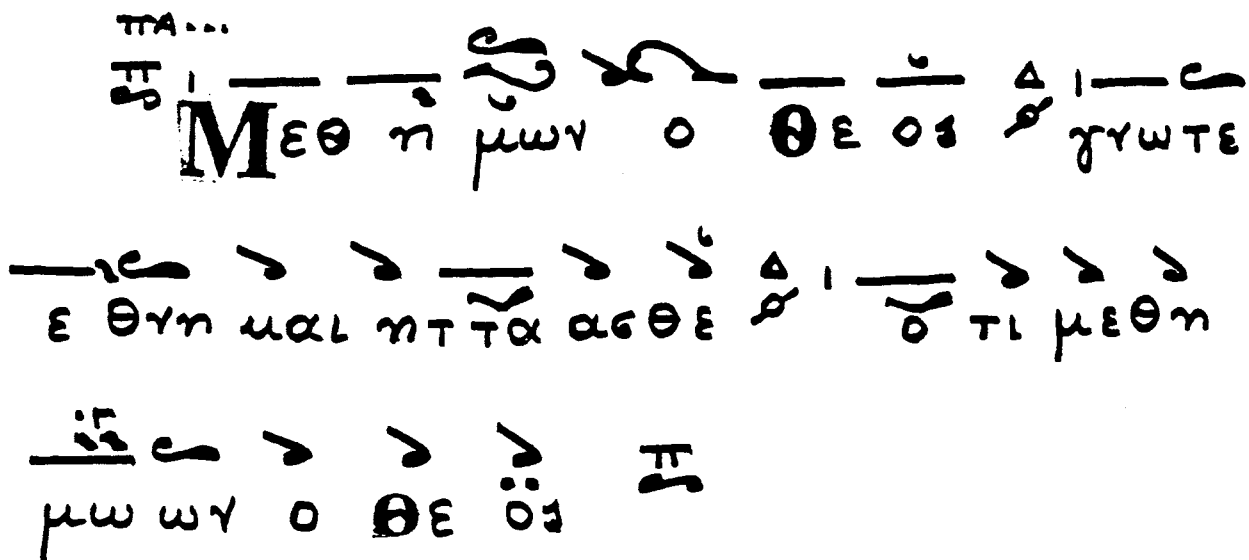 πΑ...
Μεθ η μων ο Θε ος Δ γνωτε
ε θνη και ητ τα ασ θε Δ ο τι μεθη
μω ων ο Θε ος π